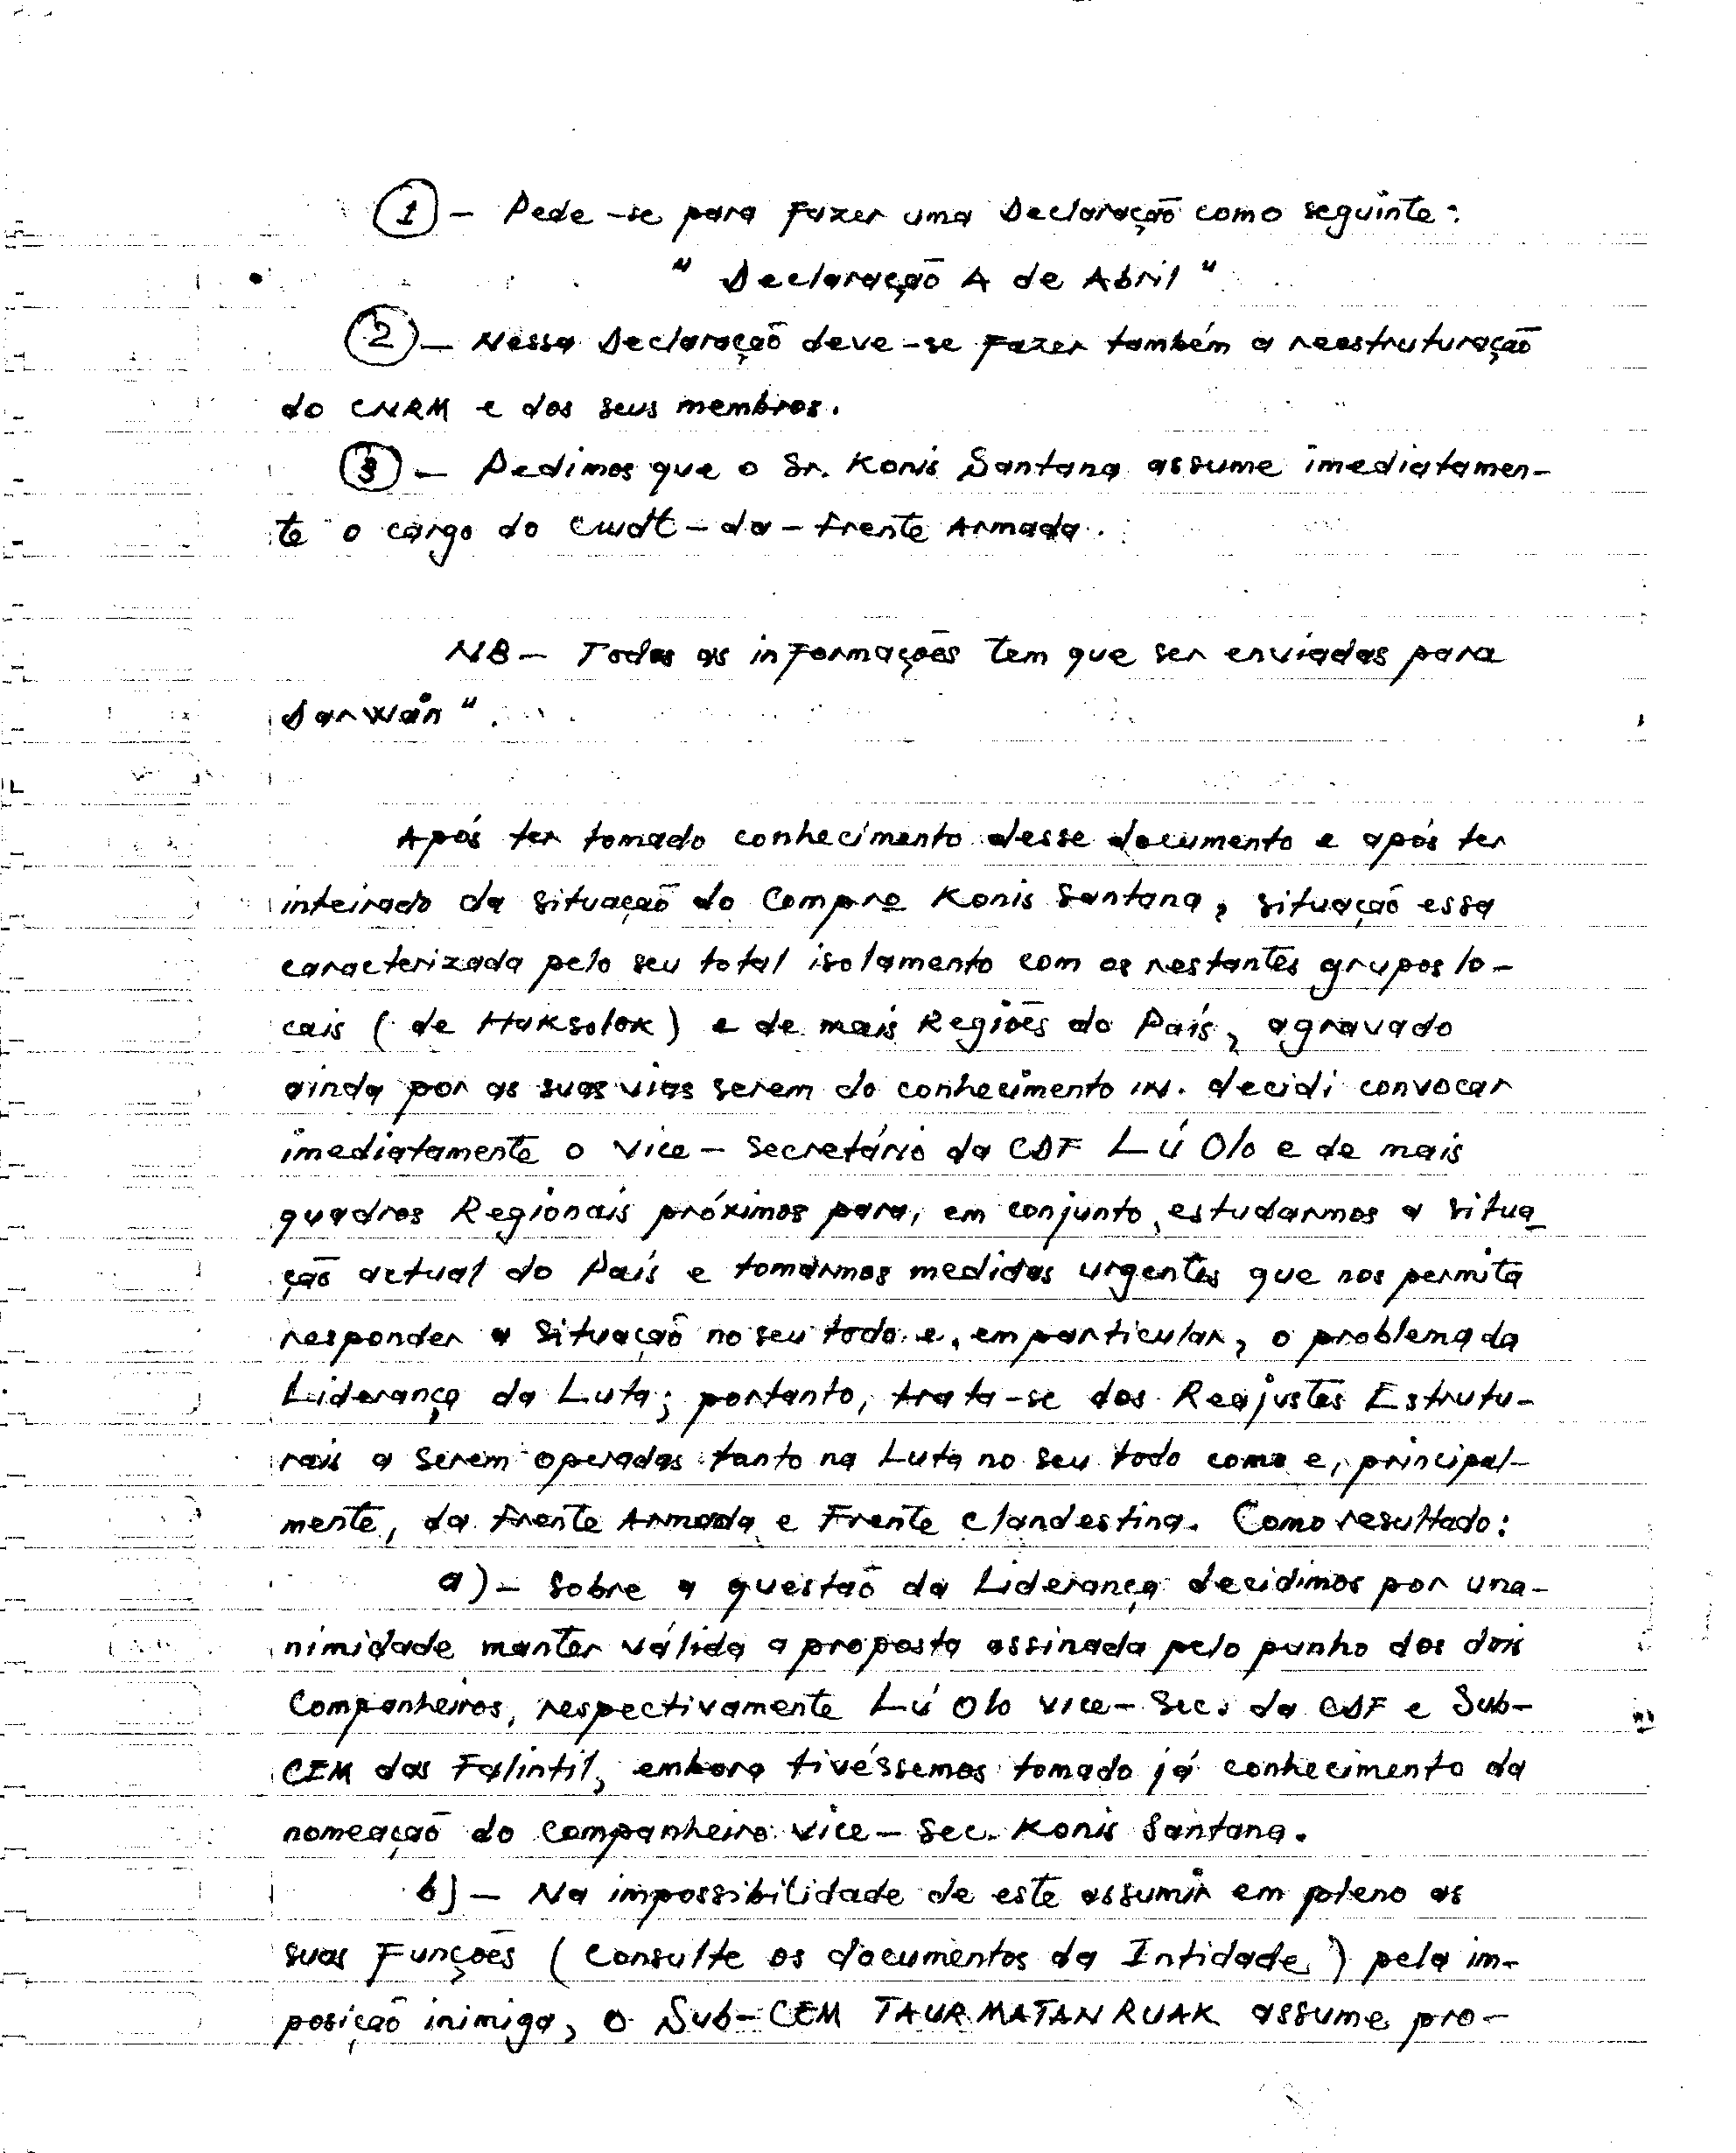 ① – Pede-se para fazer uma Declaração como seguinte:
" Declaração A de Abril "
② – Nessa Declaração deve-se fazer também a reestruturação
do CNRM e dos seus membros.
③ – Pedimos que o Sr. Konis Santana assume imediatamen-
te o cargo do Cmdt-da-Frente Armada.
NB – Todas as informações tem que ser enviadas para
Darwain".
Após ter tomado conhecimento desse documento e após ter
inteirado da situação do Compro Konis Santana, situação essa
caracterizada pelo seu total isolamento com os restantes grupos lo-
cais (de Haksolok) e de mais Regiões do País, agravado
ainda por as suas vias serem do conhecimento IN. decidi convocar
imediatamente o Vice-Secretário da CDF Lú Olo e de mais
quadros Regionais próximos para, em conjunto, estudarmos a situa-
ção actual do País e tomármos medidas urgentes que nos permita
responder a situação no seu todo e, em particular, o problema da
Liderança da Luta; portanto, trata-se dos Reajustes Estrutu-
rais a serem operadas tanto na Luta no seu todo como e, principal-
mente, da Frente Armada e Frente Clandestina. Como resultado:
a) – Sobre a questão da Liderança decidimos por una-
nimidade manter válida a proposta assinada pelo punho dos dois
Companheiros, respectivamente Lú Olo Vice-Sec. da CDF e Sub-
CEM das Falintil, embora tivéssemos tomado já conhecimento da
nomeação do Companheiro Vice-Sec. Konis Santana.
b) – Na impossibilidade de este assumir em pleno as
suas Funções (Consulte os documentos da Intidade) pela im-
posição inimiga, o Sub-CEM TAUR MATAN RUAK assume pro-